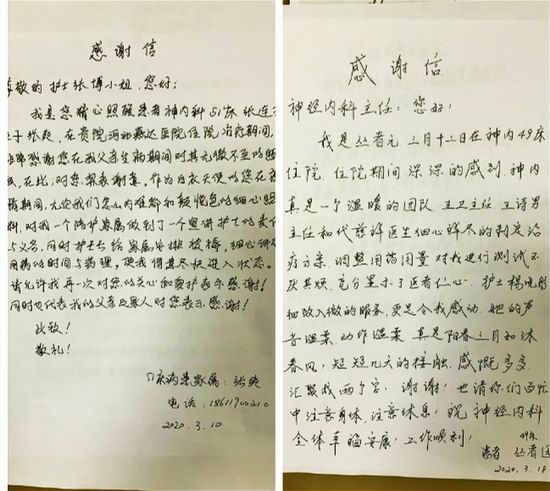 感谢信
尊敬的护士张博小姐,您好:
我是您精心照顾患者神内科51床张连
之子张爽,在贵院河北燕达医院住院治疗期间,
感谢您在我父生病期间对其无微不至的照
在此,对您深表谢意,作为白衣天使的您在
情期间,无论我们怎么内
例,对我一个陪护家属做到了一个
与义务,同时护士长给家属安排
用药的时间与药理,使我得以尽快进入状态。
请允许我再一次对您的关心和爱护表示感谢!
同时也代表我的父亲及家人对您表示,感谢!
此致!
敬礼!
床病患家属:张爽
电话:
2020.3.10
感谢信
神经内科主任:您好:
我是丛者元 三月十三日在神内49床
住院,住院期间深深的感到,神内
真是一个温暖的团队 王卫主任 王诗男
主任和代 医生细心详尽的制定治
疗方案,调整用药用量对我进行测试不
厌其烦,充分显示了医者仁心。护士杨
细致入微的服务,更是令我感动,她的声
音温柔动作温柔 真是阳春三月如沐
春风,短短几天的接触,感慨多多
汇聚成两个字:谢谢!也请你们百忙
中注意身体,注意休息,祝神经内科
全体幸福安康,工作顺利!
49床
患者 丛者
2020.3.18